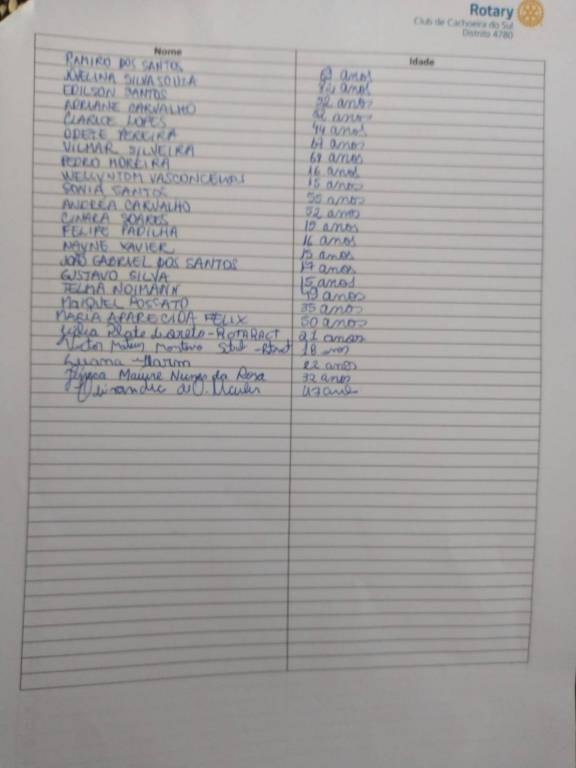 Rotary
Club de Cachoeira do Sul
Distrito 4780
Nome Idade
RAMIRO DOS SANTOS 69 anos
JOVELINA SILVA SOUZA anos
EDILSON SANTOS anos
ADRIANE CARVALHO anos
CLARICE LOPES 44 anos
ODETE PEREIRA anos
VILMAR SILVEIRA 69 anos
PEDRO MOREIRA 16 anos
WELLYNTOM VASCONCELOS 15 anos
SONIA SANTOS 55 anos
ANDREA CARVALHO 52 anos
CINARA SOARES anos
FELIPE PADILHA 16 anos
NAYNE XAVIER 15 anos
JOÃO GABRIEL DOS SANTOS 17 anos
GUSTAVO SILVA 15 anos
TELMA NOIMANN 49 anos
MAIQUEL POSSATO 35 anos
MARIA APARECIDA FELIX 50 anos
Júlia Loreto - ROTARACT 21 anos
Victor Monteiro 18 anos
Luana 22 anos
Maiure Nunes da Rosa 32 anos
47 anos